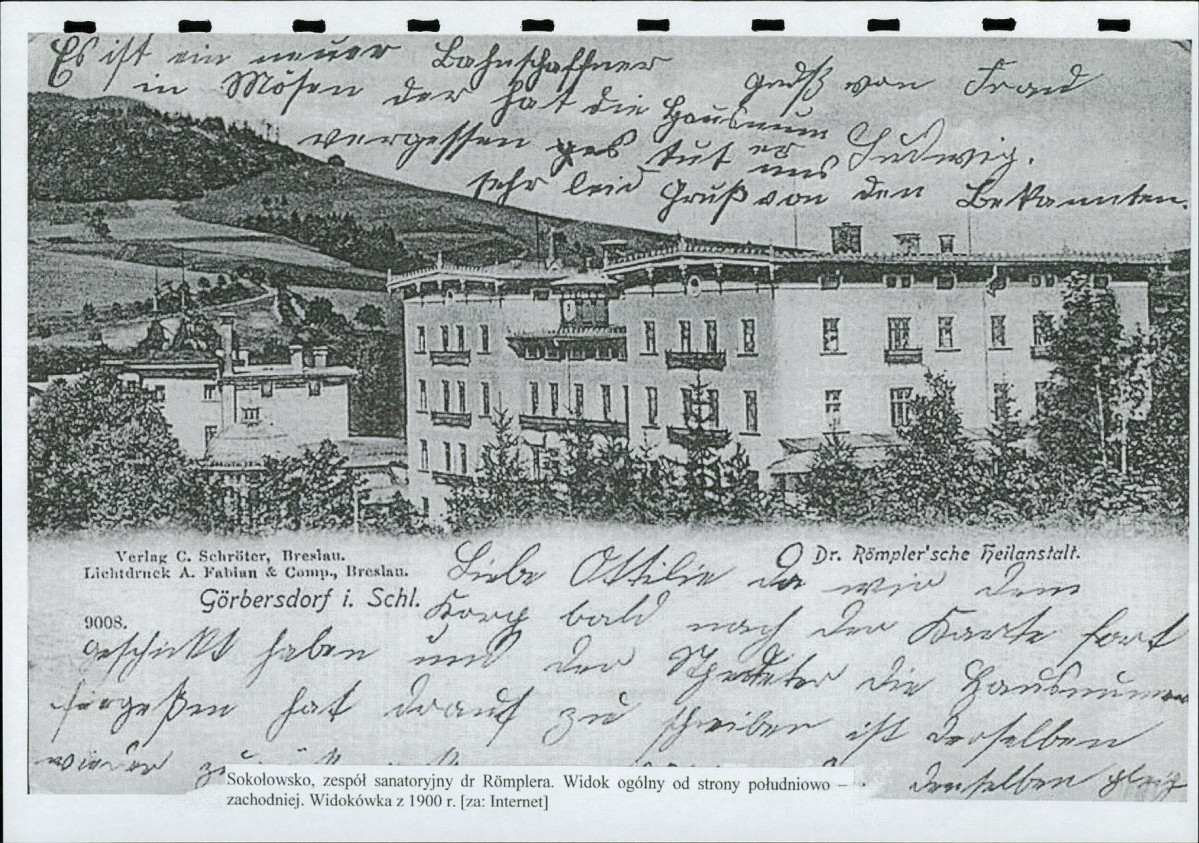 Es ist ein neuer Bahnschaffner
in Mösen der hat die Hausnum
vergessen es tut uns
sehr leid Gruß von den Bekannten.
Gruß von Frau
Ludwig.
Verlag C. Schröter, Breslau.
Lichtdruck A. Fabian & Comp., Breslau.
Görbersdorf i. Schl.
9008.
Dr. Römpler'sche Heilanstalt.
Liebe Ottilie da wir dem
Korp bald nach der Karte fort
geschickt haben und der die Hausnummer
fergeßen hat drauf zu schreiben ist derselben
wieder denselben gleig
Sokołowsko, zespół sanatoryjny dr Römplera. Widok ogólny od strony południowo –
zachodniej. Widokówka z 1900 r. [za: Internet]